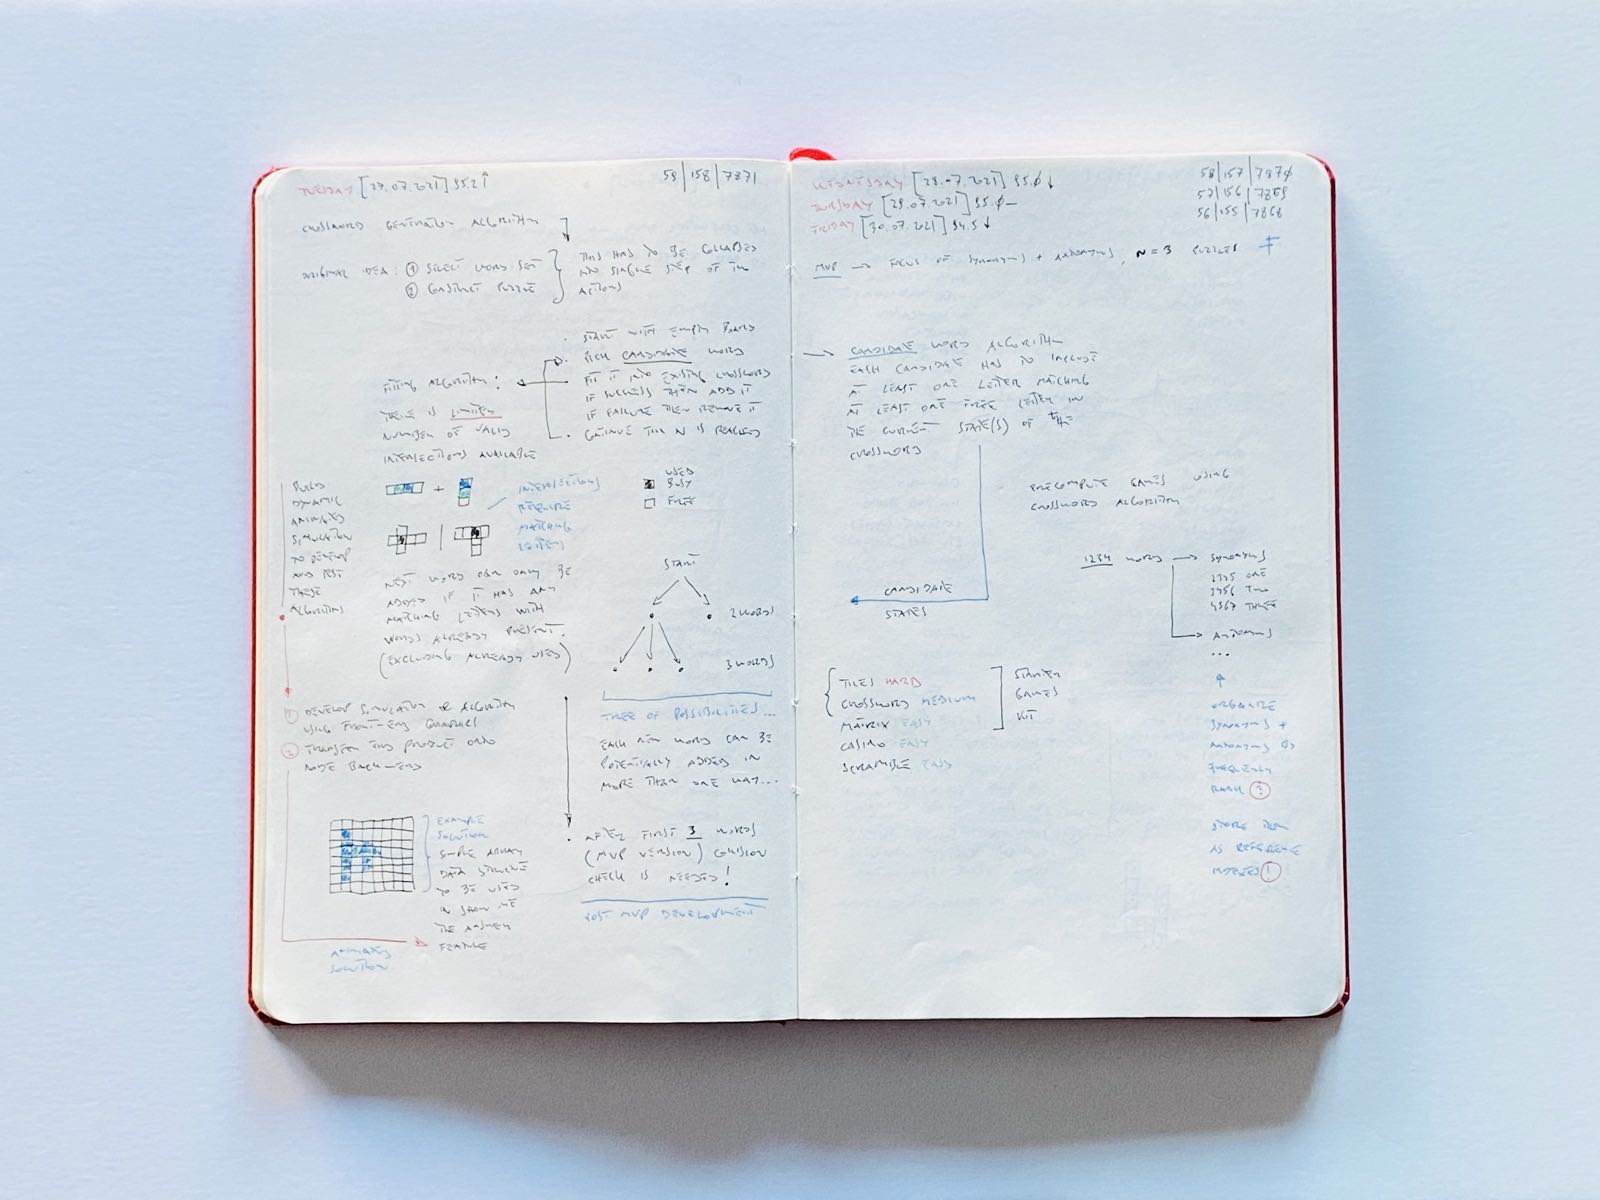 TUESDAY [27.07.2021] 95.2↑
59|158|7871
CROSSWORD GENERATION ALGORITHM
ORIGINAL IDEA: ① SELECT WORD SET
② CONSTRUCT PUZZLE
THIS HAS TO BE COLLAPSED
INTO SINGLE STEP OF TWO
ACTIONS
· START WITH EMPTY BOARD
· PICK CANDIDATE WORD
FIT IT INTO EXISTING CROSSWORD
IF SUCCESS THEN ADD IT
IF FAILURE THEN REMOVE IT
· CONTINUE TILL N IS REACHED
FITTING ALGORITHM:
THERE IS LIMITED
NUMBER OF VALID
INTERSECTIONS AVAILABLE
BUILD
DYNAMIC
ANIMATED
SIMULATION
TO DEVELOP
AND TEST
THESE
ALGORITHMS
+
INTERSECTIONS
REQUIRE
MATCHING
LETTERS
USED
BUSY
FREE
NEXT WORD CAN ONLY BE
ADDED IF IT HAS ANY
MATCHING LETTERS WITH
WORDS ALREADY PRESENT.
(EXCLUDING ALREADY USED)
START
2 WORDS
3 WORDS
TREE OF POSSIBILITIES...
EACH NEW WORD CAN BE
POTENTIALLY ADDED IN
MORE THAN ONE WAY...
① DEVELOP SIMULATION & ALGORITHM
USING FRONT-END GRAPHICS
② TRANSFER THIS PRODUCT ONTO
NODE BACK-END
EXAMPLE
SOLUTION
SIMPLE ARRAY
DATA STRUCTURE
TO BE USED
IN SHOW ME
THE ANSWER
FEATURE
ANIMATED
SOLUTION
· AFTER FIRST 3 WORDS
(MVP VERSION) COLLISION
CHECK IS NEEDED!
POST MVP DEVELOPMENT
WEDNESDAY [28.07.2021] 95.0↓
58|157|7870
THURSDAY [29.07.2021] 95.0–
57|156|7869
FRIDAY [30.07.2021] 94.5↓
56|155|7868
MVP → FOCUS ON SYNONYMS + ANTONYMS, N=3 PUZZLES
→ CANDIDATE WORD ALGORITHM
EACH CANDIDATE HAS TO INCLUDE
AT LEAST ONE LETTER MATCHING
AT LEAST ONE FREE LETTER IN
THE CURRENT STATE(S) OF THE
CROSSWORD
CANDIDATE
STATES
PRECOMPUTE GAMES USING
CROSSWORD ALGORITHM
1234 WORDS → SYNONYMS
2345 ONE
3456 TWO
4567 THREE
→ ANTONYMS
...
↑
ORGANIZE
SYNONYMS +
ANTONYMS BY
FREQUENCY
RANK ?
STORE THEM
AS REFERENCE
INDEXES !
TILES HARD
CROSSWORD MEDIUM
MATRIX EASY
CASINO EASY
SCRAMBLE EASY
STARTER
GAMES
KIT